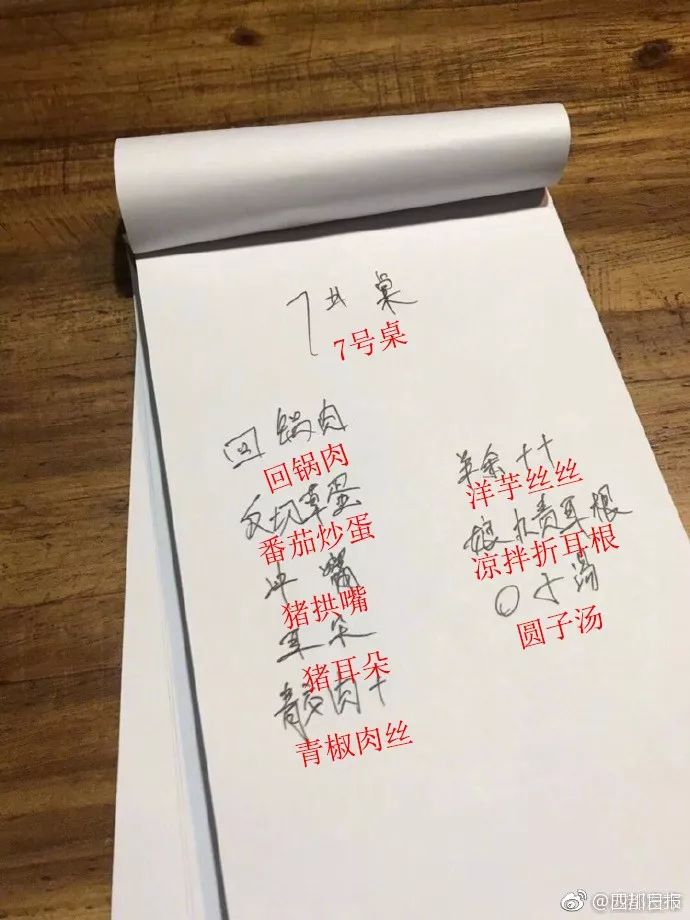 7井桌
7号桌
回锅肉
回锅肉
反切草蛋
番茄炒蛋
冲嘴
猪拱嘴
耳朵
猪耳朵
青交肉十
青椒肉丝
羊余十十
洋芋丝丝
娘九责耳根
凉拌折耳根
〇子汤
圆子汤
@西都日报